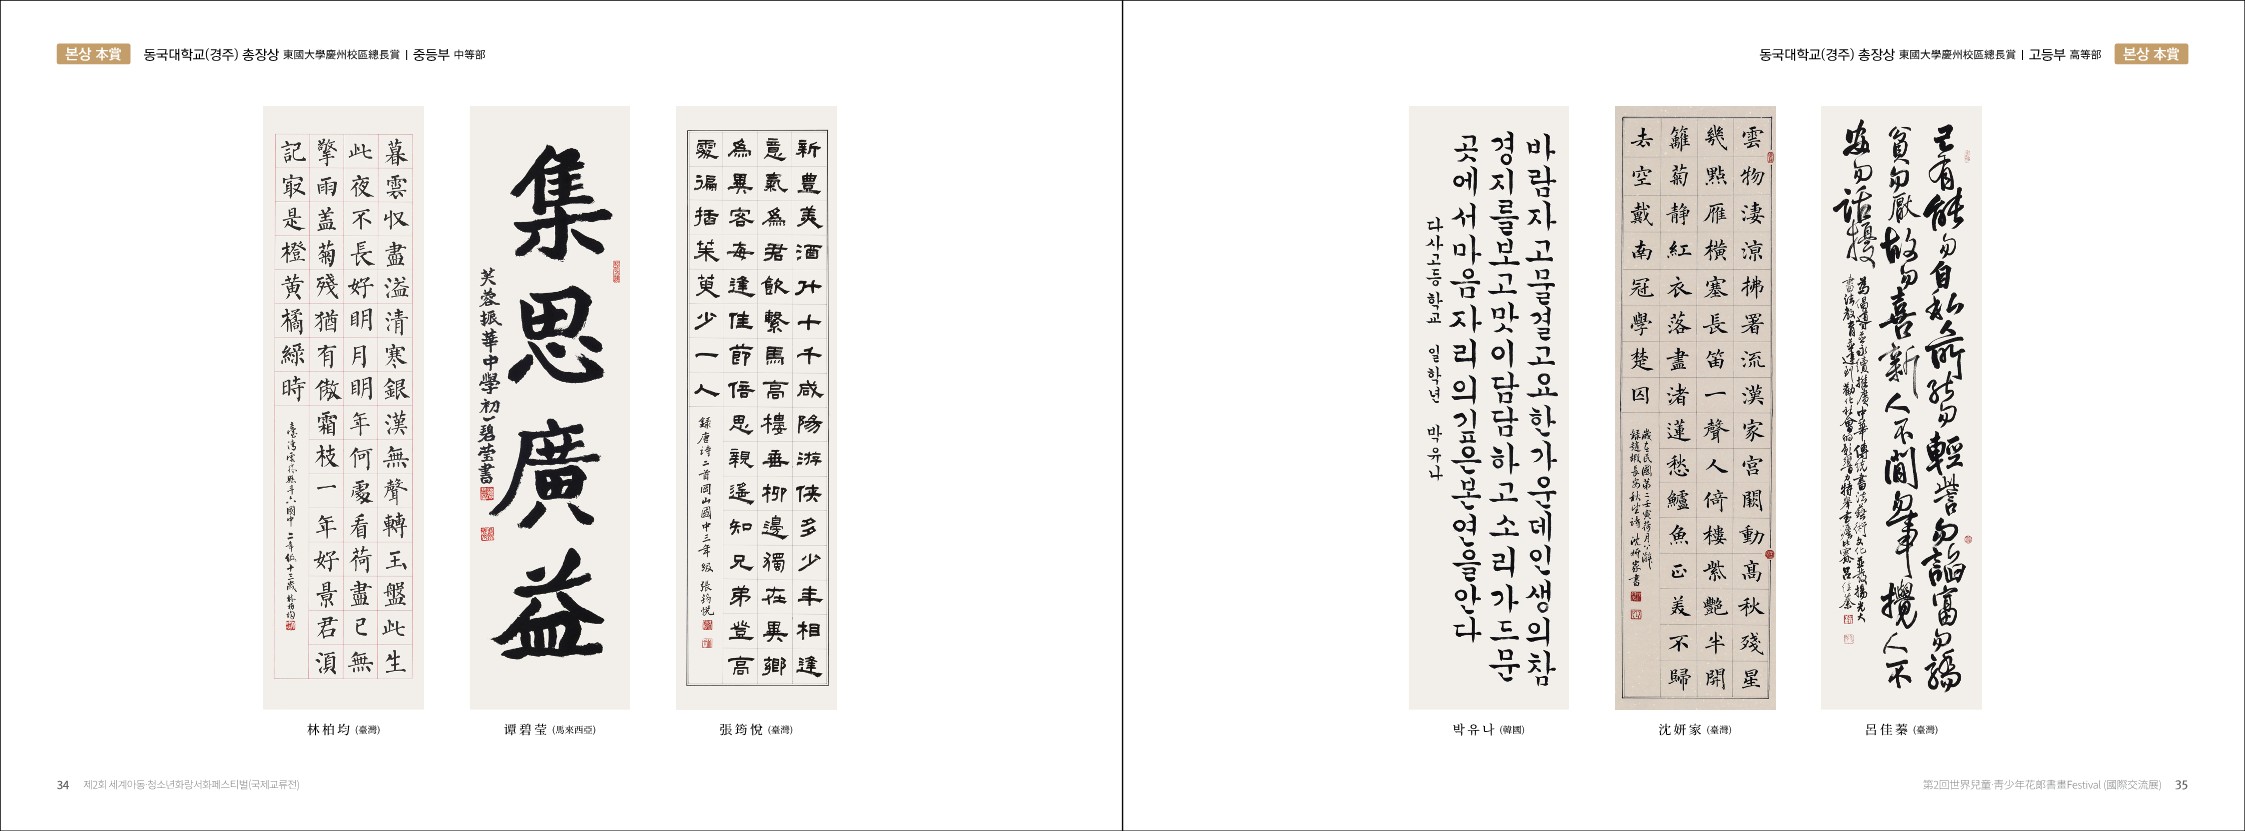 본상 本賞 동국대학교(경주) 총장상 東國大學慶州校區總長賞 | 중등부 中等部
暮雲収盡溢清寒銀漢無聲轉玉盤此生
此夜不長好明月明年何處看荷盡已無
擎雨盖菊殘猶有傲霜枝一年好景君湏
記㝡是橙黄橘綠時
臺灣雲林縣斗六國中 二年級十三歲 林柏均
集思廣益
芙蓉振華中學初一碧莹書
新豊美酒斗十千咸陽游俠多少年相逢
意氣為君飲繫馬高樓垂柳邊獨在異鄉
為異客每逢佳節倍思親遥知兄弟登高
處徧插茱萸少一人
録唐诗二首岡山國中三年级 張筠悅
林柏均 (臺灣)
谭碧莹 (馬來西亞)
張筠悅 (臺灣)
34 제2회 세계아동·청소년화랑서화페스티벌(국제교류전)
동국대학교(경주) 총장상 東國大學慶州校區總長賞 | 고등부 高等部 본상 本賞
바람자고물결고요한가운데인생의참
경지를보고맛이담담하고소리가드문
곳에서마음자리의깊은본연을안다
다사고등학교 일학년 박유나
雲物淒涼拂署流漢家宮闕動高秋殘星
幾點雁橫塞長笛一聲人倚樓紫艷半開
籬菊静紅衣落盡渚蓮愁鱸魚正美不歸
去空戴南冠學楚囚
歲在民國第二壬寅荷月
録趙嘏長安秋望诗 沈妍家書
己有能勿自私人所能勿輕訾勿諂富勿驕
貧勿厭故勿喜新人不閒勿事攪人不
安勿话擾
박유나 (韓國)
沈妍家 (臺灣)
呂佳蓁 (臺灣)
第2回世界兒童·靑少年花郎書畫Festival (國際交流展) 35